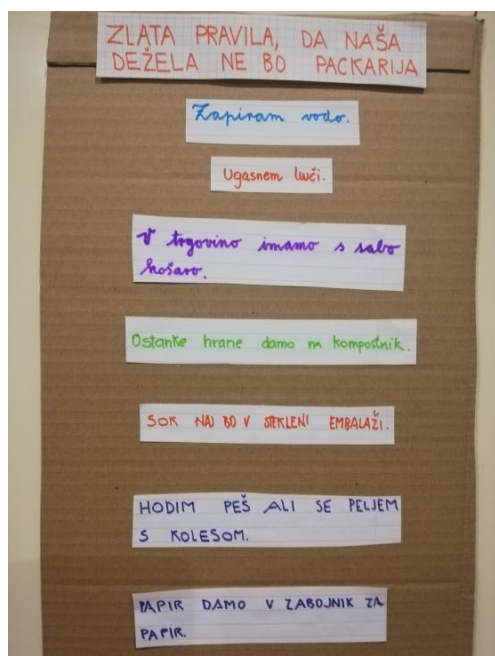 ZLATA PRAVILA, DA NAŠA
DEŽELA NE BO PACKARIJA
Zapiram vodo.
Ugasnem luči.
V trgovino imamo s sabo
košaro.
Ostanke hrane damo m kompostnik.
SOK NAJ BO V STEKLENI EMBALAŽI.
HODIM PEŠ ALI SE PELJEM
S KOLESOM.
PAPIR DAMO V ZABOJNIK ZA
PAPIR.